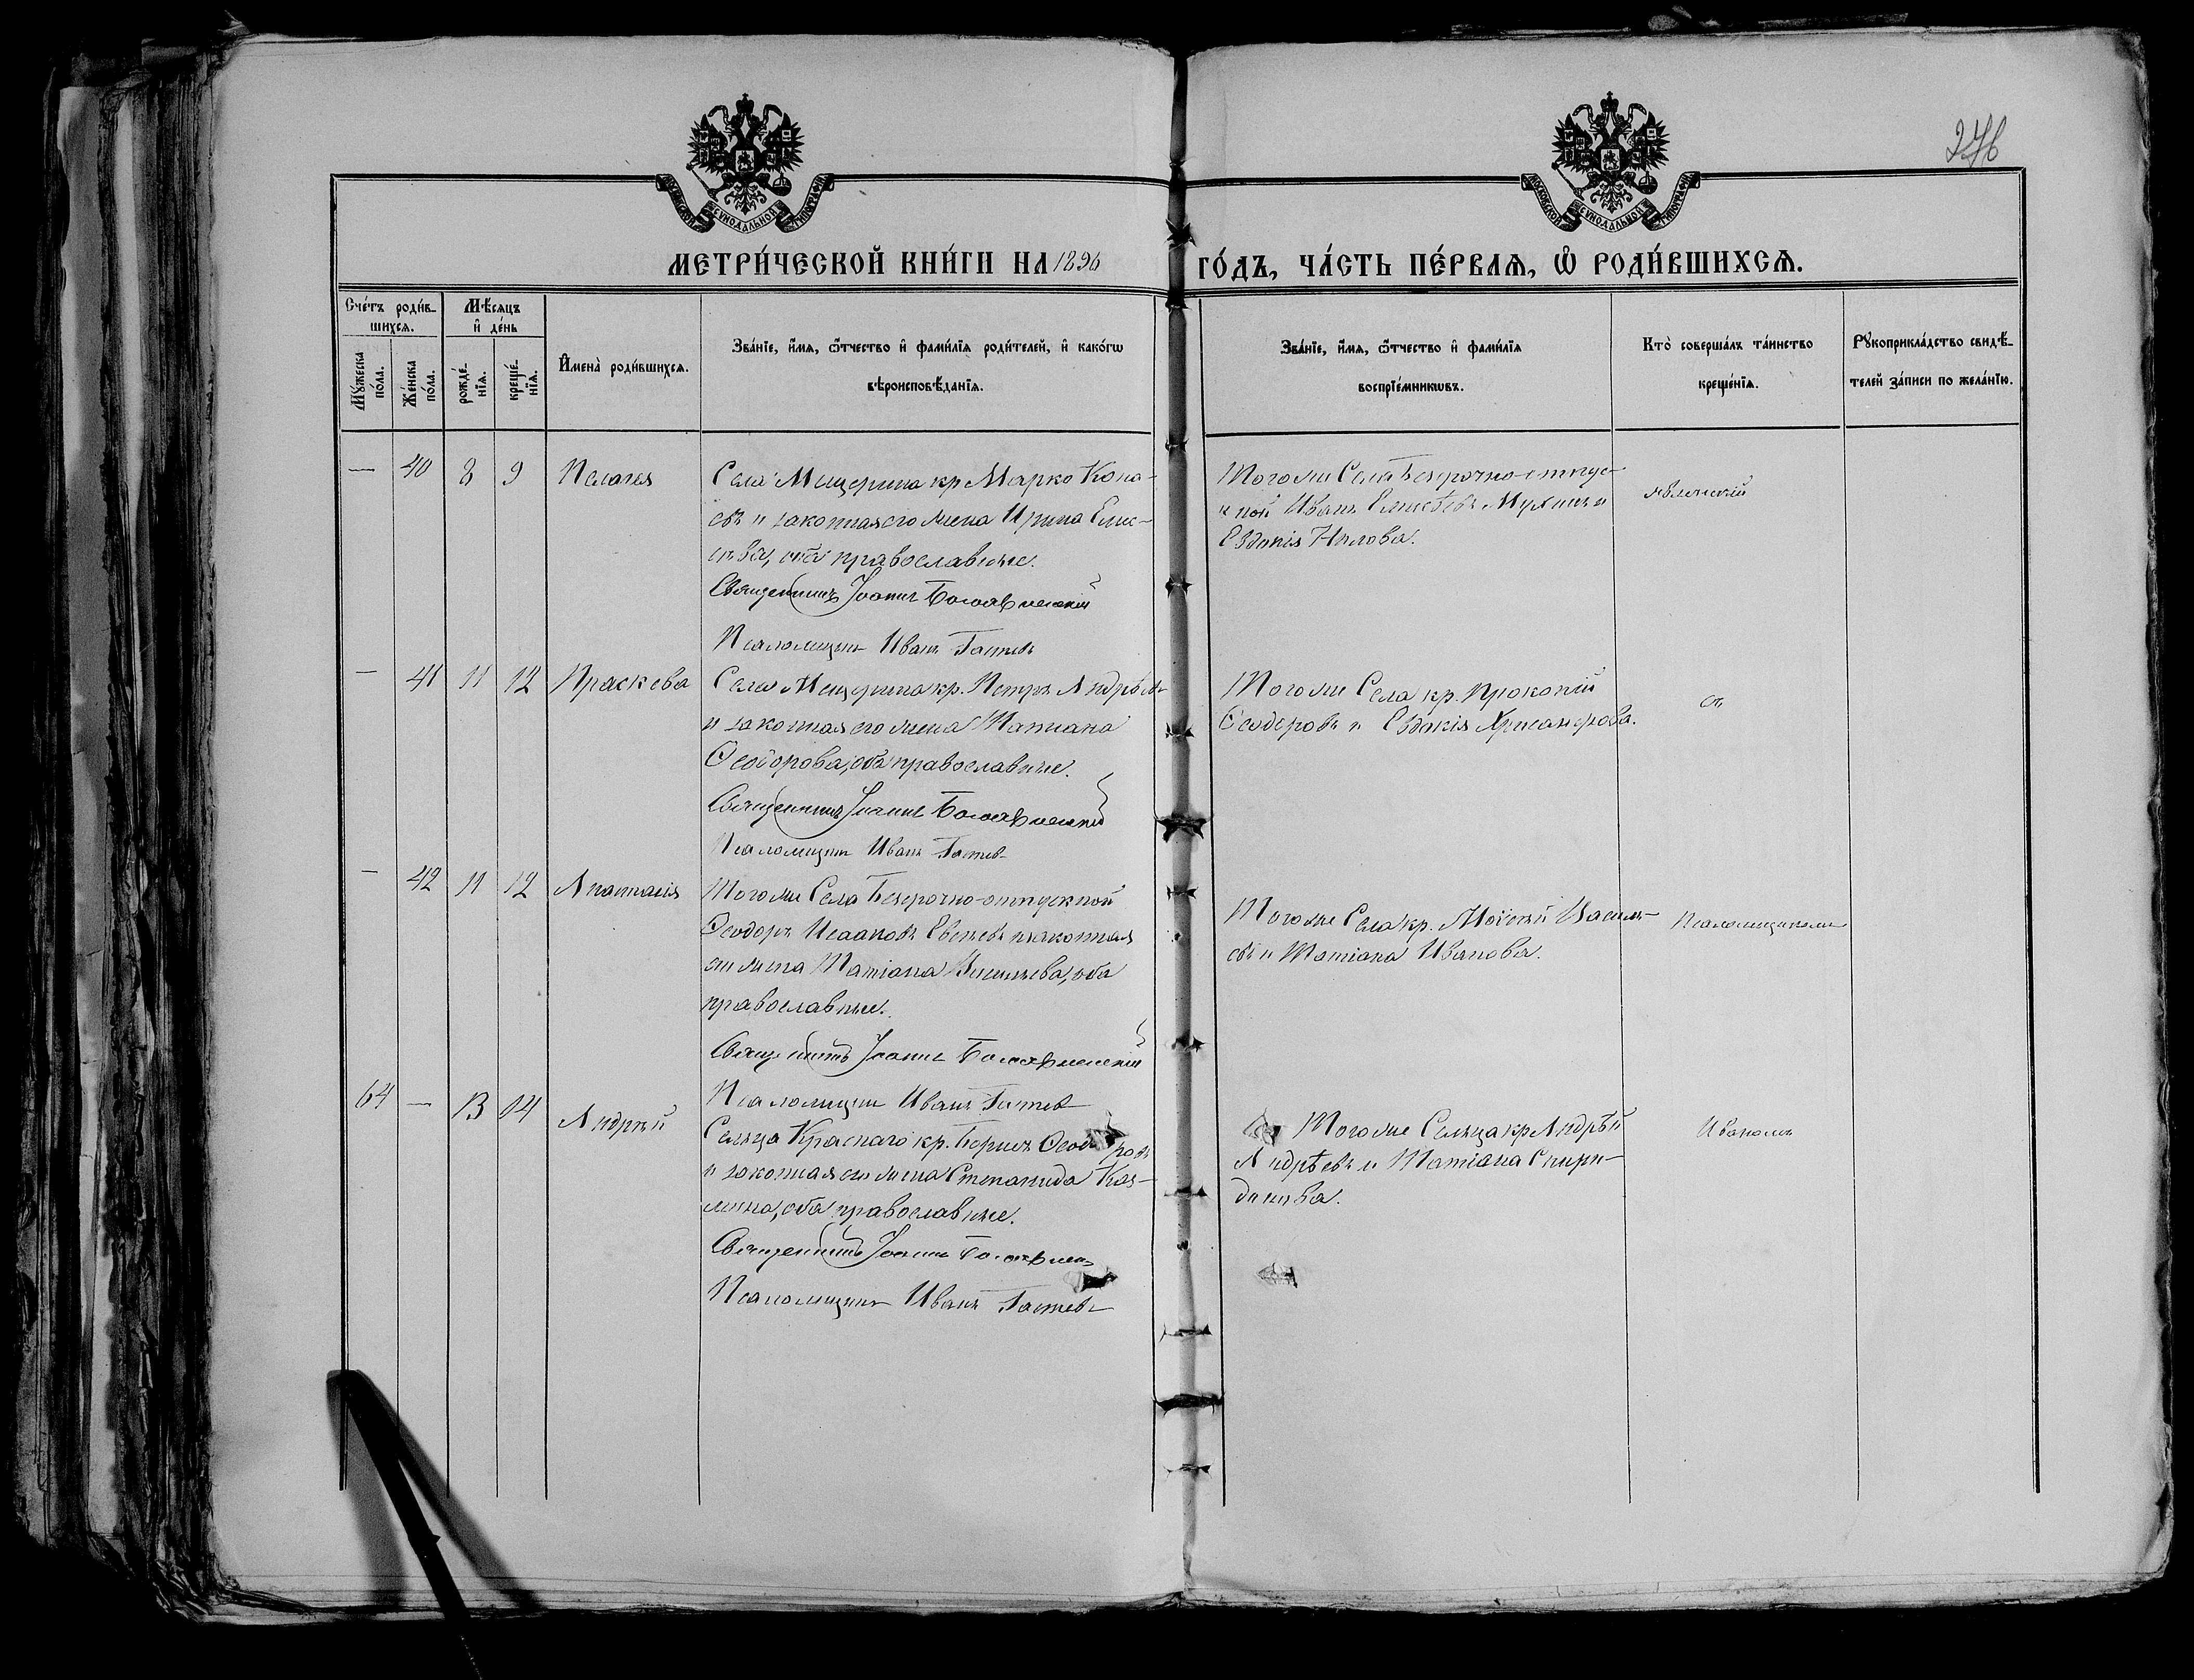 276
МОСКОВСКОЙ СУНОДАЛЬНОЙ ТИПОГРАФІИ
МОСКОВСКОЙ СУНОДАЛЬНОЙ ТИПОГРАФІИ
МЕТРИ́ЧЕСКОЙ КНИ́ГИ НА 1896 ГО́ДЪ, ЧА́СТЬ ПЕ́РВАѦ, Ѡ РОДИ́ВШИХСѦ.
Сче́тъ роди́в-
шихсѧ.
Мѣ́сяцъ
и де́нь
Мꙋ́жеска
по́ла.
Же́нска
по́ла.
рожде́-
нїѧ.
креще́-
нїѧ.
Имена̀ роди́вшихсѧ.
Зва́нїе, и́мѧ, ѻ҆́тчество и фами́лїѧ роди́телей, и како́гѡ
вѣроисповѣ́данїѧ.
Зва́нїе, и́мѧ, ѻ҆́тчество и фами́лїѧ
воспрїе́мникѡвъ.
Кто̀ соверша́лъ та́инство
креще́нїѧ.
Рꙋкоприкла́дство свидѣ́-
телей за́писи по жела́нїю.
— 40 8 9 Пелагея
Села Мещерина кр. Марко Кона-
евъ и законная его жена Ирина Елис-
ѣева, оба православные.
Священникъ Іоаннъ Богоявленскій
Псаломщикъ Иванъ Гастевъ
Того же Села Безсрочно-отпус-
кной Иванъ Елисѣевъ Мухинъ и
Евдокія Нилова.
явленскій
— 41 11 12 Праскева
Села Мещерина кр. Петръ Андреев
и законная его жена Татиана
Ѳеодорова, оба православные.
Священникъ Іоаннъ Богоявленскій
Псаломщикъ Иванъ Гастев
Того же Села кр. Прокопій
Ѳеодоровъ и Евдокія Хрисанфова.
съ
— 42 11 12 Анатасія
Того же Села Безсрочно-отпускной
Ѳеодоръ Исааковъ Евсѣевъ и законная
его жена Татіана Васильева, оба
православные.
Священникъ Іоаннъ Богоявленскій
Псаломщикъ Иванъ Гастев
Того же Села кр. Моѵсей Василь-
евъ и Татіана Иванова.
Псаломщикомъ
64 — 13 14 Андрей
Сельца Краснаго кр. Борисъ Ѳеодоровъ
и законная его жена Степанида Коз-
мина, оба православные.
Священникъ Іоаннъ Богоявлен
Псаломщикъ Иванъ Гастевъ
Того же Сельца кр. Андрей
Андрѣевъ и Татіана Спири-
донова.
Иваномъ